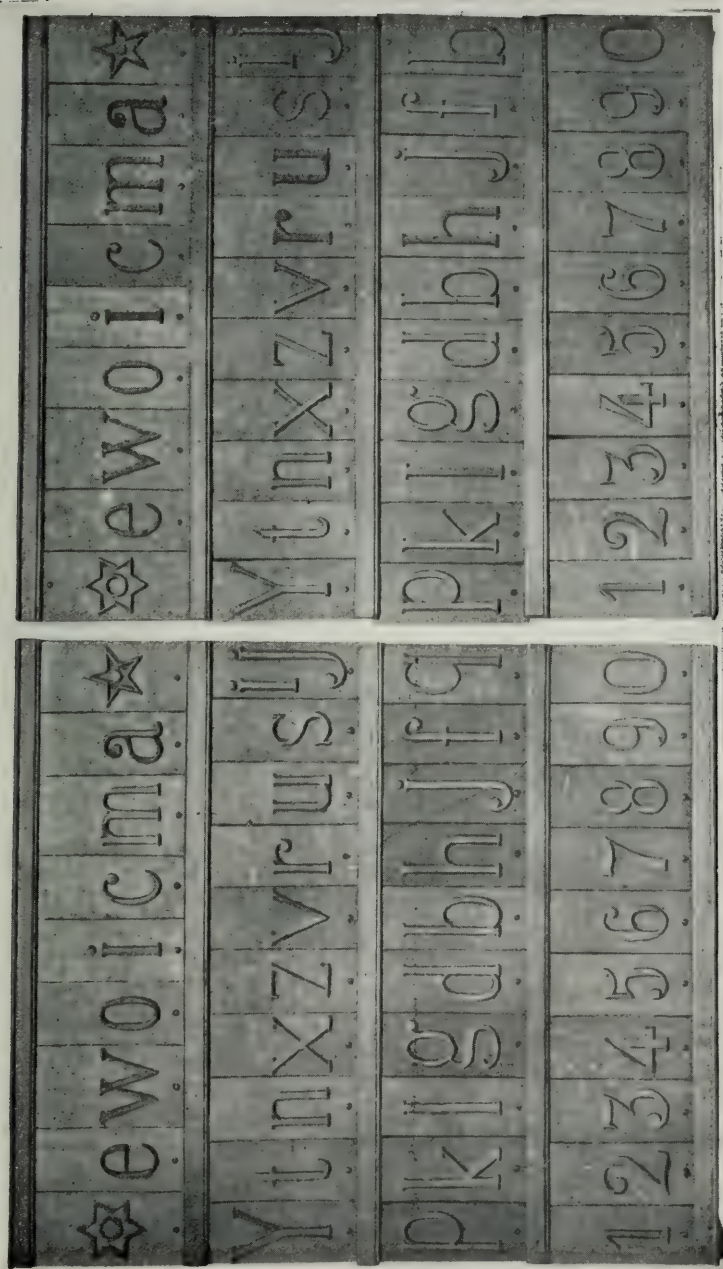 e w o i c m a
Y t n x z v r u s ij
p k l g d b h j f q
1 2 3 4 5 6 7 8 9 0
e w o i c m a
Y t n x z v r u s ij
p k l g d b h j f b
1 2 3 4 5 6 7 8 9 0